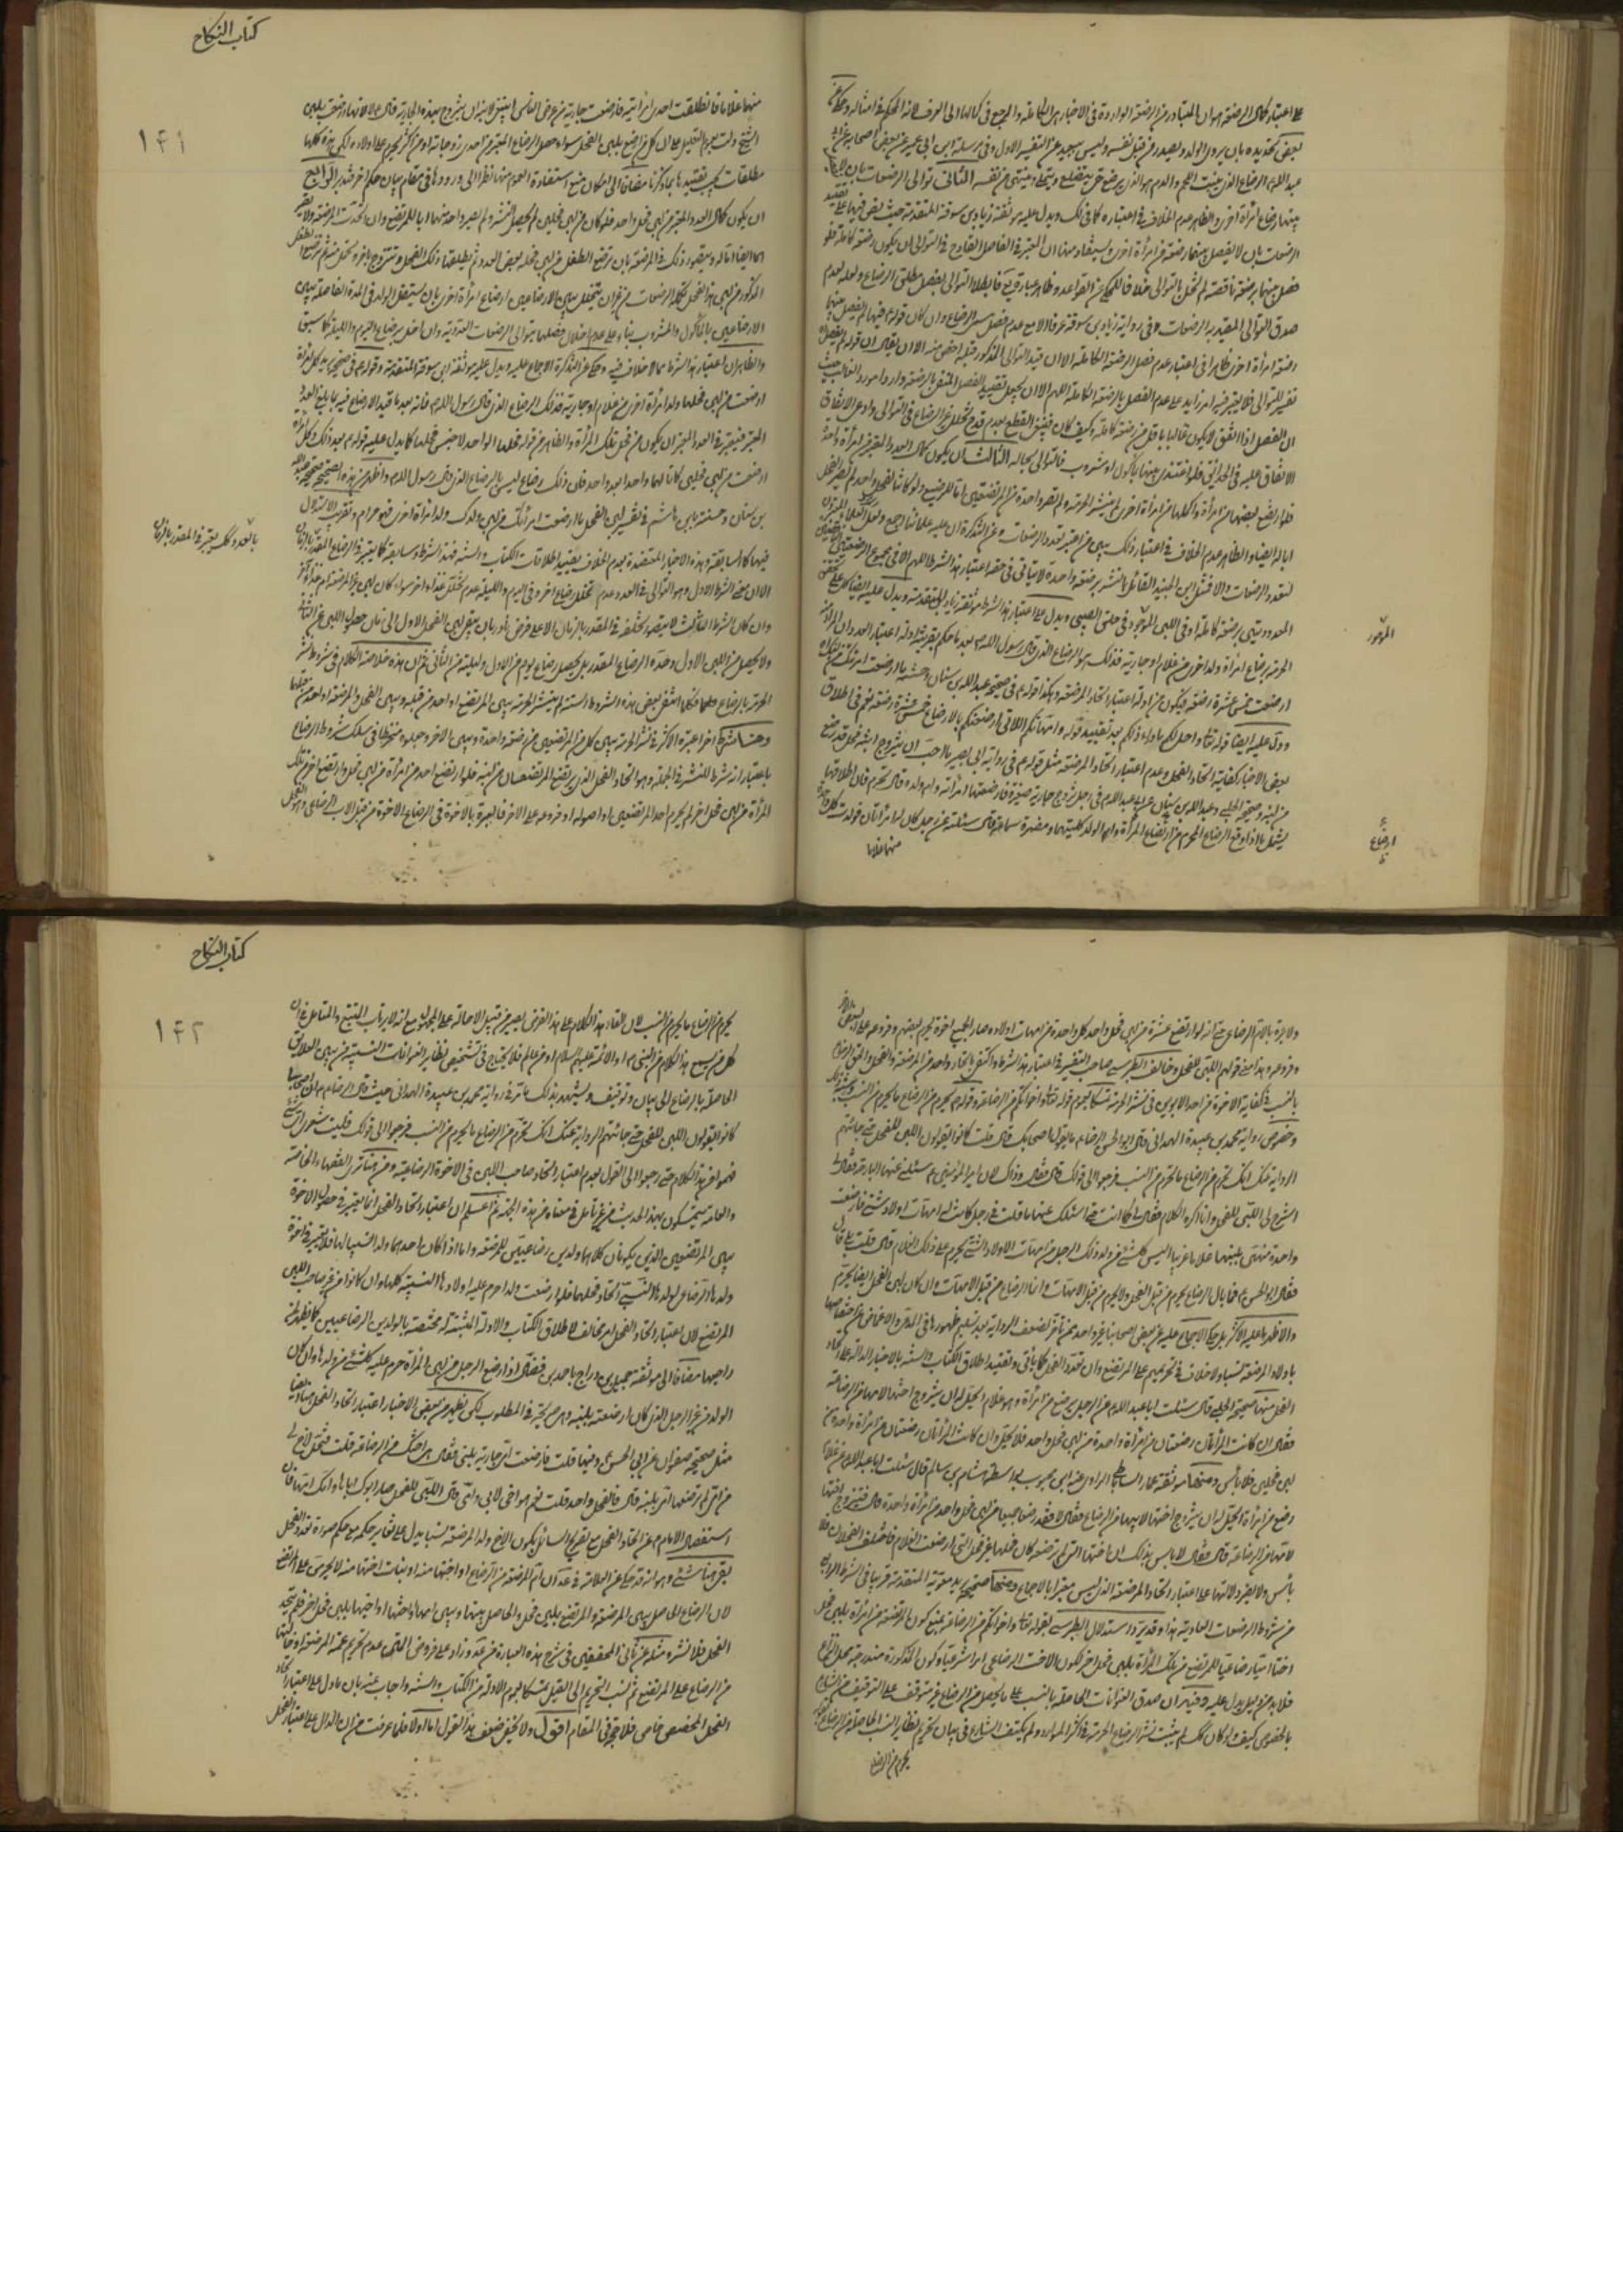 على اعتبار كمال الرضعة هو ان المتبادر من الرضعة الواردة في الاخبار هى الكاملة والمرجع في كمالها الى العرف لانه المحكم في امثاله وحكى عن
بعض تحديده بان يروى الولد ويصدر من قبل نفسه وليس ببعيد عن التفسير الاول وفي مرسلة ابن ابى عمير عن بعض اصحابه عن ابى
عبد الله الرضاع الذى ينبت اللحم والدم هو الذى يرضع حتى يتضلع ويتملى وينتهى من نفسه الثانى توالى الرضعات بان لا
بينها رضاع امرأة اخرى والظاهر عدم الخلاف في اعتباره كما في ويدل عليه موثقة زياد بن سوقة المتقدمة حيث
الرضعات بان لا يفصل بينها رضعة من امرأة اخرى ويستفاد منها ان المعتبر في الفاصل القادح في التوالى ان يكون رضعة كاملة فلو
فصل بينها برضعة ناقصة لم تخل بالتوالى خلافا للمحكى عن القواعد
صدق التوالى المقيد به الرضعات في رواية زياد بن سوقة عرفا الا مع عدم فصل مسمى الرضاع وان كان قوله فيها لم يفصل بينها
رضعة امرأة اخرى ظاهرا في اعتبار عدم فصل الرضعة الكاملة الا ان قيد التوالى المذكور قبله اخص منه الا ان يقال ان قوله لم يفصل
تفسير للتوالى فلا يعتبر فيه امر زايد على عدم الفصل بالرضعة الكاملة اللهم الا ان يجعل تقييد الفصل المنفى بالرضعة واردا مورد الغالب حيث
ان الفصل اذا اتفق لا يكون غالبا باقل من رضعة كاملة وكيف كان
الاتفاق عليه في الحدائق فلو اغتذى بينها بمأكول او مشروب فالتوالى بحاله الثالث ان يكون كمال العدد المعتبر من امرأة واحدة
فلو ارتضع بعضها من امرأة واكملها من امرأة اخرى لم ينشر الحرمة ولم تصر واحدة من المرضعتين اما للرضيع ولو كانتا لفحل واحد لم يصر الفحل
ابا له ايضا والظاهر عدم الخلاف في اعتبار ذلك بين من اعتبر تعدد الرضعات وعن التذكرة ان عليه علمائنا اجمع
لتعدد الرضعات والا فمثل ابن الجنيد القائل بالنشر برضعة واحدة لا يتأتى في حقه اعتبار هذا الشرط اللهم الا في
المعدودتين برضعة كاملة او في اللبن الموجور في حلق الصبى ويدل على اعتبار هذا الشرط موثقة زياد المتقدمة ويدل عليه ايضا
الموجور
المرأة
ارضعت خمس عشرة رضعة فيكون من ادلة اعتبار اتحاد المرضعة وبكذا قوله في صحيحة عبد الله بن سنان وحسنته ما ارضعت امرأتك من لبنك
ودل عليه ايضا قوله تعالى واحل لكم ما وراء ذلكم بعد تقييد قوله وامهاتكم اللاتى ارضعنكم بالارضاع خمس عشرة رضعة نعم في اطلاق
بعض الاخبار كفاية اتحاد الفحل وعدم اعتبار اتحاد المرضعة مثل قوله في رواية ابى بصير ما احب ان يتزوج ابنة فحل قد رضع
من لبنه وصحيحة الحلبى وعبد الله بن سنان عن ابى عبد الله في رجل تزوج جارية صغيرة فارضعتها امرأته وام ولده قال تحرم فان اطلاقها
يشمل ما اذا وقع الرضاع المحرم من ارتضاع المرأة وام الولد كليتهما ومضمرة سماعة قال سئلته عن رجل كان له امرأتان فولدت كل واحدة
ارضاع
منهما غلاما
كتاب النكاح
١٤١
منهما غلاما فانطلقت احدى امرأتيه فارضعت جارية من عرض الناس اينبغى لابنه ان يتزوج بهذه الجارية قال لا لانها ارضعت بلبن
الشيخ دلت بعموم التعليل على ان كل من ارضع بلبن الفحل سواء حصل الرضاع المعتبر من احدى زوجاته او من اكثر يحرم على اولاده لكن هذه كلها
مطلقات يجب تقييدها بما ذكرنا مضافا الى امكان منع استفادة العموم منها نظرا الى ورودها في مقام بيان حكم اخر فتدبر الرابع
ان يكون كمال العدد المعتبر من لبن فحل واحد فلو كان من لبن فحلين لم يحصل النشر ولم يصر واحد منهما ابا للمرتضع وان اتحدت المرضعة ولا تصير
اما ايضا له ويتصور ذلك في المرضعة بان ترضع الطفل من لبن فحله بعض العدد ثم يطلقها ذلك الفحل وتتزوج باخر وتحمل منه ثم ترضع الطفل
المذكور من لبن هذا الفحل تكملة الرضعات من غير ان يتخلل بين الارضاعين ارضاع امرأة اخرى بان يستقل الولد في المدة الفاصلة بين
الارضاعين بالمأكول والمشروب بناء على عدم اخلال فصلهما بتوالى الرضعات العددية وان اخل برضاع اليوم والليلة كما سبق
والظاهر ان اعتبار هذا الشرط مما لا خلاف فيه وحكى عن التذكرة الاجماع عليه ويدل عليه موثقة ابن سوقة المتقدمة وقوله في صحيحة بريد كل امرأة
ارضعت من لبن فحلها ولد امرأة اخرى من غلام او جارية فذلك الرضاع الذى قال رسول الله فانه بعد ما قيد الارضاع فيه ببلوغ العدد
المعتبر فيعتبر في العدد المعتبر ان يكون من فحل تلك المرأة والظاهر من قوله فحلها الواحد لا جنس فحلها كما يدل عليه قوله بعد ذلك وكل امرأة
ارضعت من لبن فحلين كانا لها واحدا بعد واحد فان ذلك رضاع ليس بالرضاع الذى قال رسول الله واظهر من هذه الصحيحة صحيحة عبد الله
بن سنان وحسنته بابن هاشم في تفسير لبن الفحل ما ارضعت امرأتك من لبن ولدك ولد امرأة اخرى فهو حرام وتقريب الاستدلال
فيها كما سابقته وبهذه الاخبار المعتضدة بعدم الخلاف يقيد اطلاقات الكتاب والسنة فهذا الشرط وسابقه كما يعتبر في الرضاع المقدر بالزمان
بالعدد وكك يعتبر في المقدر بالزمان
وان كان الشرط الثالث لا يتصور تخلفه في المقدر بالزمان الا على فرض نادر بان يبقى لبن الفحل الاول الى زمان حصول اللبن من الثانى
ولا يحصل من اللبن الاول وحده الرضاع المقدر بل يحصل رضاع يوم من الاول وليلة من الثانى ثم ان هذه خلاصة الكلام في شروط نشر
الحرمة بالرضاع
وهنا شرط اخر اعتبره الاكثر في نشر الحرمة بين كل من المرتضعين من مرضعة واحدة وبين الاخر وجعلوه منخرطا في سلك شروط الرضاع
باعتبار انه شرط للنشر في الجملة وهو اتحاد الفحل الذى يرتضع المرتضعان من لبنه فلو ارتضع احد من امرأة من لبن فحل وارتضع اخر من تلك
المرأة من لبن فحل اخر لم يحرم احد المرتضعين او اصوله او فروعه على الاخر فالعبرة بالاخوة في الرضاع الاخوة من قبل الاب الرضاعى وهو الفحل
ولا عبرة بالام الرضاع حتى انه لو ارتضع عشرة من لبن فحل واحد كل واحد من امهات اولاده صار الجميع اخوة يحرم بعضهم وفروعه على البعض الاخر
وفروعه وهذا معنى قولهم اللبن للفحل وخالف الطبرسى صاحب التفسير في اعتبار هذا الشرط واكتفى باتحاد واحد من المرضعة والفحل
بالنسب في كفاية الاخوة من احد الابوين في نشر الحرمة تمسكا بعموم قوله تعالى واخواتكم من الرضاعة وقوله يحرم من الرضاع ما يحرم من النسب
وخصوص رواية محمد بن عبيدة الهمدانى قال قال ابو الحسن الرضا ما يقول اصحابك قال قلت كانوا يقولون اللبن للفحل حتى جائتهم
الرواية عنك انك تحرم من الرضاع ما يحرم من النسب فرجعوا الى قولك قال فقال وذاك لان امير المؤمنين سئلنى عنها البارحة فقال لى
اشرح لى اللبن للفحل وانا اكره الكلام فقال لى كما انت حتى اسئلك عنها ما قلت في رجل كانت له امهات اولاد شتى فارضعت
واحدة منهن بلبنها غلاما غريبا اليس كل شئ من ولد ذلك الرجل من امهات الاولاد الشتى يحرم على ذلك الغلام قال قلت بلى قال
فقال ابو الحسن فما بال الرضاع يحرم من قبل الفحل ولا يحرم من قبل الامهات وانما الرضاع من قبل الامهات وان كان لبن الفحل ايضا يحرم
والاظهر ما عليه الاكثر بل حكى الاجماع عليه عن بعض اصحابنا وغير واحد ممن تأخر لضعف الرواية بعد تسليم ظهورها في المدعى والاغماض عن اختصاصها
باولاد المرضعة نسبا ولا خلاف في تحريمهم على المرتضع وان تعدد الفحل كما يأتى وتقييد اطلاق الكتاب والسنة بالاخبار الدالة على اتحاد
الفحل منها صحيحة الحلبى قال سئلت ابا عبد الله عن الرجل يرضع من امرأة وهو غلام ايحل له ان يتزوج اختها لامها من الرضاعة
فقال ان كانت المرأتان رضعتان من امرأة واحدة من لبن فحل واحد فلا يحل وان كانت المرأتان رضعتان من امرأة واحدة من
لبن فحلين فلا بأس ومنها موثقة عمار الساباطى الراوى عنه ابن محبوب بواسطة هشام بن سالم قال سئلت ابا عبد الله عن غلام
رضع من امرأة ايحل له ان يتزوج اختها لابيها من الرضاع فقال لا فقد رضعا جميعا من لبن فحل واحد من امرأة واحدة قال فيتزوج اختها
لامها من الرضاعة قال فقال لا باس بذلك ان اختها التى لم ترضعه كان فحلها غير فحل التى ارضعت الغلام فاختلف الفحلان فلا
بأس ولا يضر دلالتها على اعتبار اتحاد المرضعة الذى ليس معتبرا بالاجماع ومنها صحيحة بريد بن معوية المتقدمة قريبا في الشرط الرابع
من شروط الرضعات العددية هذا وقد يرد استدلال الطبرسى بقوله تعالى واخواتكم من الرضاعة بمنع كون المرتضعة من امرأة بلبن فحل
اختا رضاعية للمرتضع من تلك المرأة بلبن فحل اخر لكون الاخت الرضاعى امرا شرعيا وكون المذكورة مندرجة
فلا بد من دليل يدل عليه وفيه ان صدق العنوانات الحاصلة بالنسب على ما يحصل من الرضاع غير متوقف على التوقيف من الشارع
بالخصوص كيف ولو كان كك لم يثبت نشر الرضاع الحرمة في اكثر الموارد ولم يكتف الشارع في بيان تحريم نظاير النسب الحاصلة من الرضاع
يحرم من الرضاع
كتاب النكاح
١٤٢
يحرم من الرضاع ما يحرم من النسب لان القاء هذا الكلام على هذا الفرض يصير من قبيل الاحالة على المجهول مع انه لا يرتاب المتتبع والمتأمل في ان
كل من يسمع هذا الكلام من النبى او الائمة عليهم السلام او من عالم فلا يحتاج في تشخيص نظاير العنوانات النسبية من بين العلايق
الحاصلة بالرضاع الى بيان وتوقيف ويشهد بذلك ما مر في رواية محمد بن عبيدة الهمدانى حيث قال الرضا ان اصحابنا
كانوا يقولون اللبن للفحل حتى جائتهم الرواية عنك انك تحرم من الرضاع ما يحرم من النسب فرجعوا الى قولك فليت شعرى اى شئ
فهموا من هذا الكلام حتى رجعوا الى القول بعدم اعتبار اتحاد صاحب اللبن في الاخوة الرضاعية ومن هنا ترى الفقهاء الخاصة
والعامة يتمسكون بهذا الحديث من غير تأمل في معناه من هذه الجهة ثم اعلم ان اعتبار اتحاد الفحل انما يعتبر في حصول الاخوة
بين المرتضعين الذين يكونان كلاهما ولدين رضاعيين للمرضعة واما اذا كان احدهما ولدا نسبيا لها فلا يعتبر في اخوة
ولدها الرضاعى لولدها النسبى اتحاد فحلهما فلو ارضعت ولدا حرم عليه اولادها النسبية كلها وان كانوا من غير صاحب اللبن
المرتضع لان اعتبار اتحاد الفحل امر مخالف لاطلاق الكتاب والادلة المثبتة له مختصة بالولدين الرضاعيين كما يظهر لمن
راجعها مضافا الى موثقة جميل بن دراج باحمد بن فضال اذا رضع الرجل من لبن المرأة حرم عليه كل شئ من ولدها وان كان
الولد من غير الرجل الذى كان ارضعته بلبنه وهى صريحة في المطلوب لكن يظهر من بعض الاخبار اعتبار اتحاد الفحل هنا ايضا
مثل صحيحة صفوان عن ابى الحسن وفيها قلت فارضعت امى جارية بلبنى فقال هى اختك من الرضاعة قلت فتحل لاخ لى
من امى لم ترضعها امى بلبنه قال فالفحل واحد قلت نعم هو اخى لابى وامى قال اللبن للفحل صار ابوك اباها وامك امها فان
استفصال الامام عن اتحاد الفحل مع تقريع السائل بكون الاخ ولد المرضعة نسبا يدل على تغاير حكمه مع حكم صورة تعدد الفحل
بقى هنا شئ وهو انه قد حكى عن العلامة في عد ان ام المرضعة من الرضاع او اختها منه او بنات اختها منه لا يحرمن على المرتضع
لان الرضاع الحاصل بين المرضعة والمرتضع بلبن فحل والحاصل بينها وبين امها واختها او اختها بلبن فحل اخر فلم يتحد
الفحل فلا نشر ومثله عن ثانى المحققين في شرح هذه العبارة من عد وزاد على فروض المتن عدم تحريم عمة المرضعة او خالتها
من الرضاع على المرتضع ثم نسب التحريم الى القيل تمسكا بعموم الادلة من الكتاب والسنة واجاب عنه بان ما دل على اعتبار اتحاد
الفحل المخصص خاص فلا حجة في المقام اقول ولا يخفى ضعف هذا القول اما اولا فلما عرفت من ان الدال على اعتبار الفحل